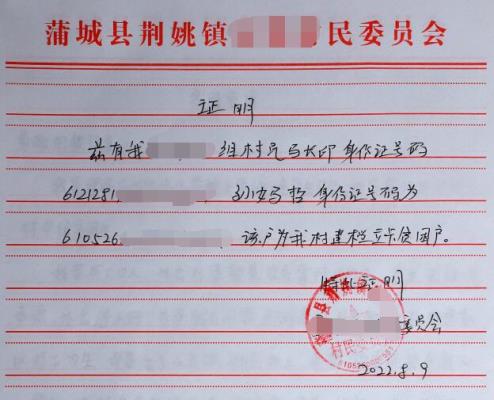 蒲城县荆姚镇 民委员会
证明
兹有我 组村民马大印身份证号码
6121281. 孙女马哲 身份证号码为
610526. 该户为我村建档立卡贫困户。
特此证明
委员会
蒲城县荆姚镇
村民委
2022.8.9